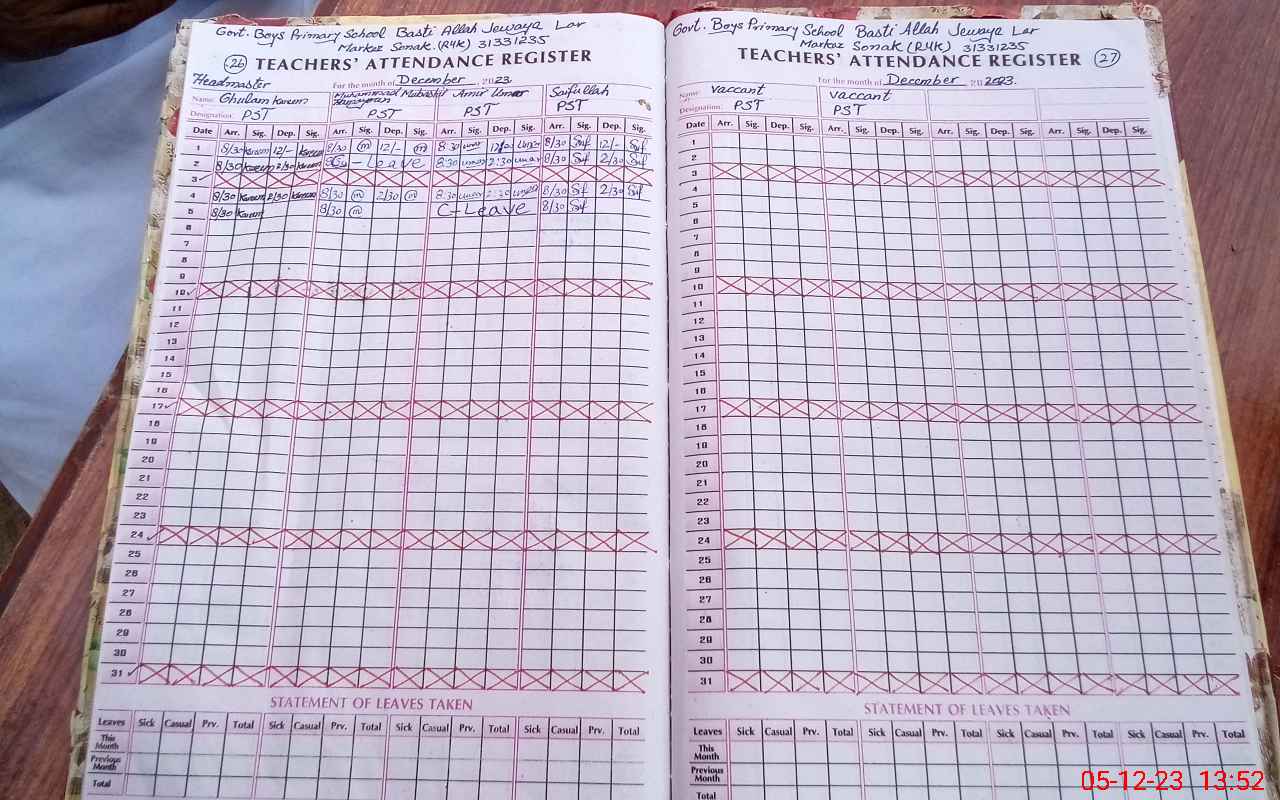 Govt. Boys Primary School Basti Allah Jewaya Lar
Markaz Sonak (R4K) 31331235
26 TEACHERS' ATTENDANCE REGISTER
Headmaster For the month of December 2023.
Name: Ghulam Kareem Muhammad Mubashir Amir Umar Saifullah
Designation: PST PST PST PST
Date Arr. Sig. Dep. Sig. Arr. Sig. Dep. Sig. Arr. Sig. Dep. Sig. Arr. Sig. Dep. Sig.
1 8/30 Kareem 12/- Kareem 8/30 m 12/- m 8:30 umar umar 8/30 Saif 12/- Saif
2 8/30 Kareem 2/30 Kareem - Leave 8:30 umar 2:30 umar 8/30 Saif 2/30 Saif
3
4 8/30 Kareem 2/30 Kareem 8/30 m 2/30 m 8:30 umar 2:30 umar 8/30 Saif 2/30 Saif
5 8/30 Kareem 8/30 m C-Leave 8/30 Saif
6
7
8
9
10
11
12
13
14
15
16
17
18
19
20
21
22
23
24
25
26
27
28
29
30
31
STATEMENT OF LEAVES TAKEN
Leaves Sick Casual Prv. Total Sick Casual Prv. Total Sick Casual Prv. Total Sick Casual Prv. Total
This Month
Previous Month
Total
Govt. Boys Primary School Basti Allah Jewaya Lar
Markaz Sonak (R4K) 31331235
TEACHERS' ATTENDANCE REGISTER 27
For the month of December 2023.
Name: vaccant vaccant
Designation: PST PST
Date Arr. Sig. Dep. Sig. Arr. Sig. Dep. Sig. Arr. Sig. Dep. Sig. Arr. Sig. Dep. Sig.
1
2
3
4
5
6
7
8
9
10
11
12
13
14
15
16
17
18
19
20
21
22
23
24
25
26
27
28
29
30
31
STATEMENT OF LEAVES TAKEN
Leaves Sick Casual Prv. Total Sick Casual Prv. Total Sick Casual Prv. Total Sick Casual Prv. Total
This Month
Previous Month
Total
05-12-23 13:52